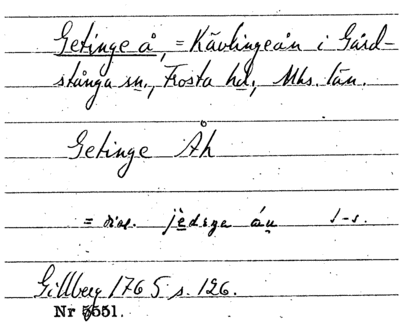 Getinge å, = Kävlingeån i Gård-
stånga sn., Frosta hd, Mhs. län.
Getinge Åh
= dial. jèdiŋa áṇ 1-s.
Gillberg 1765 s. 126.
Nr 5551.